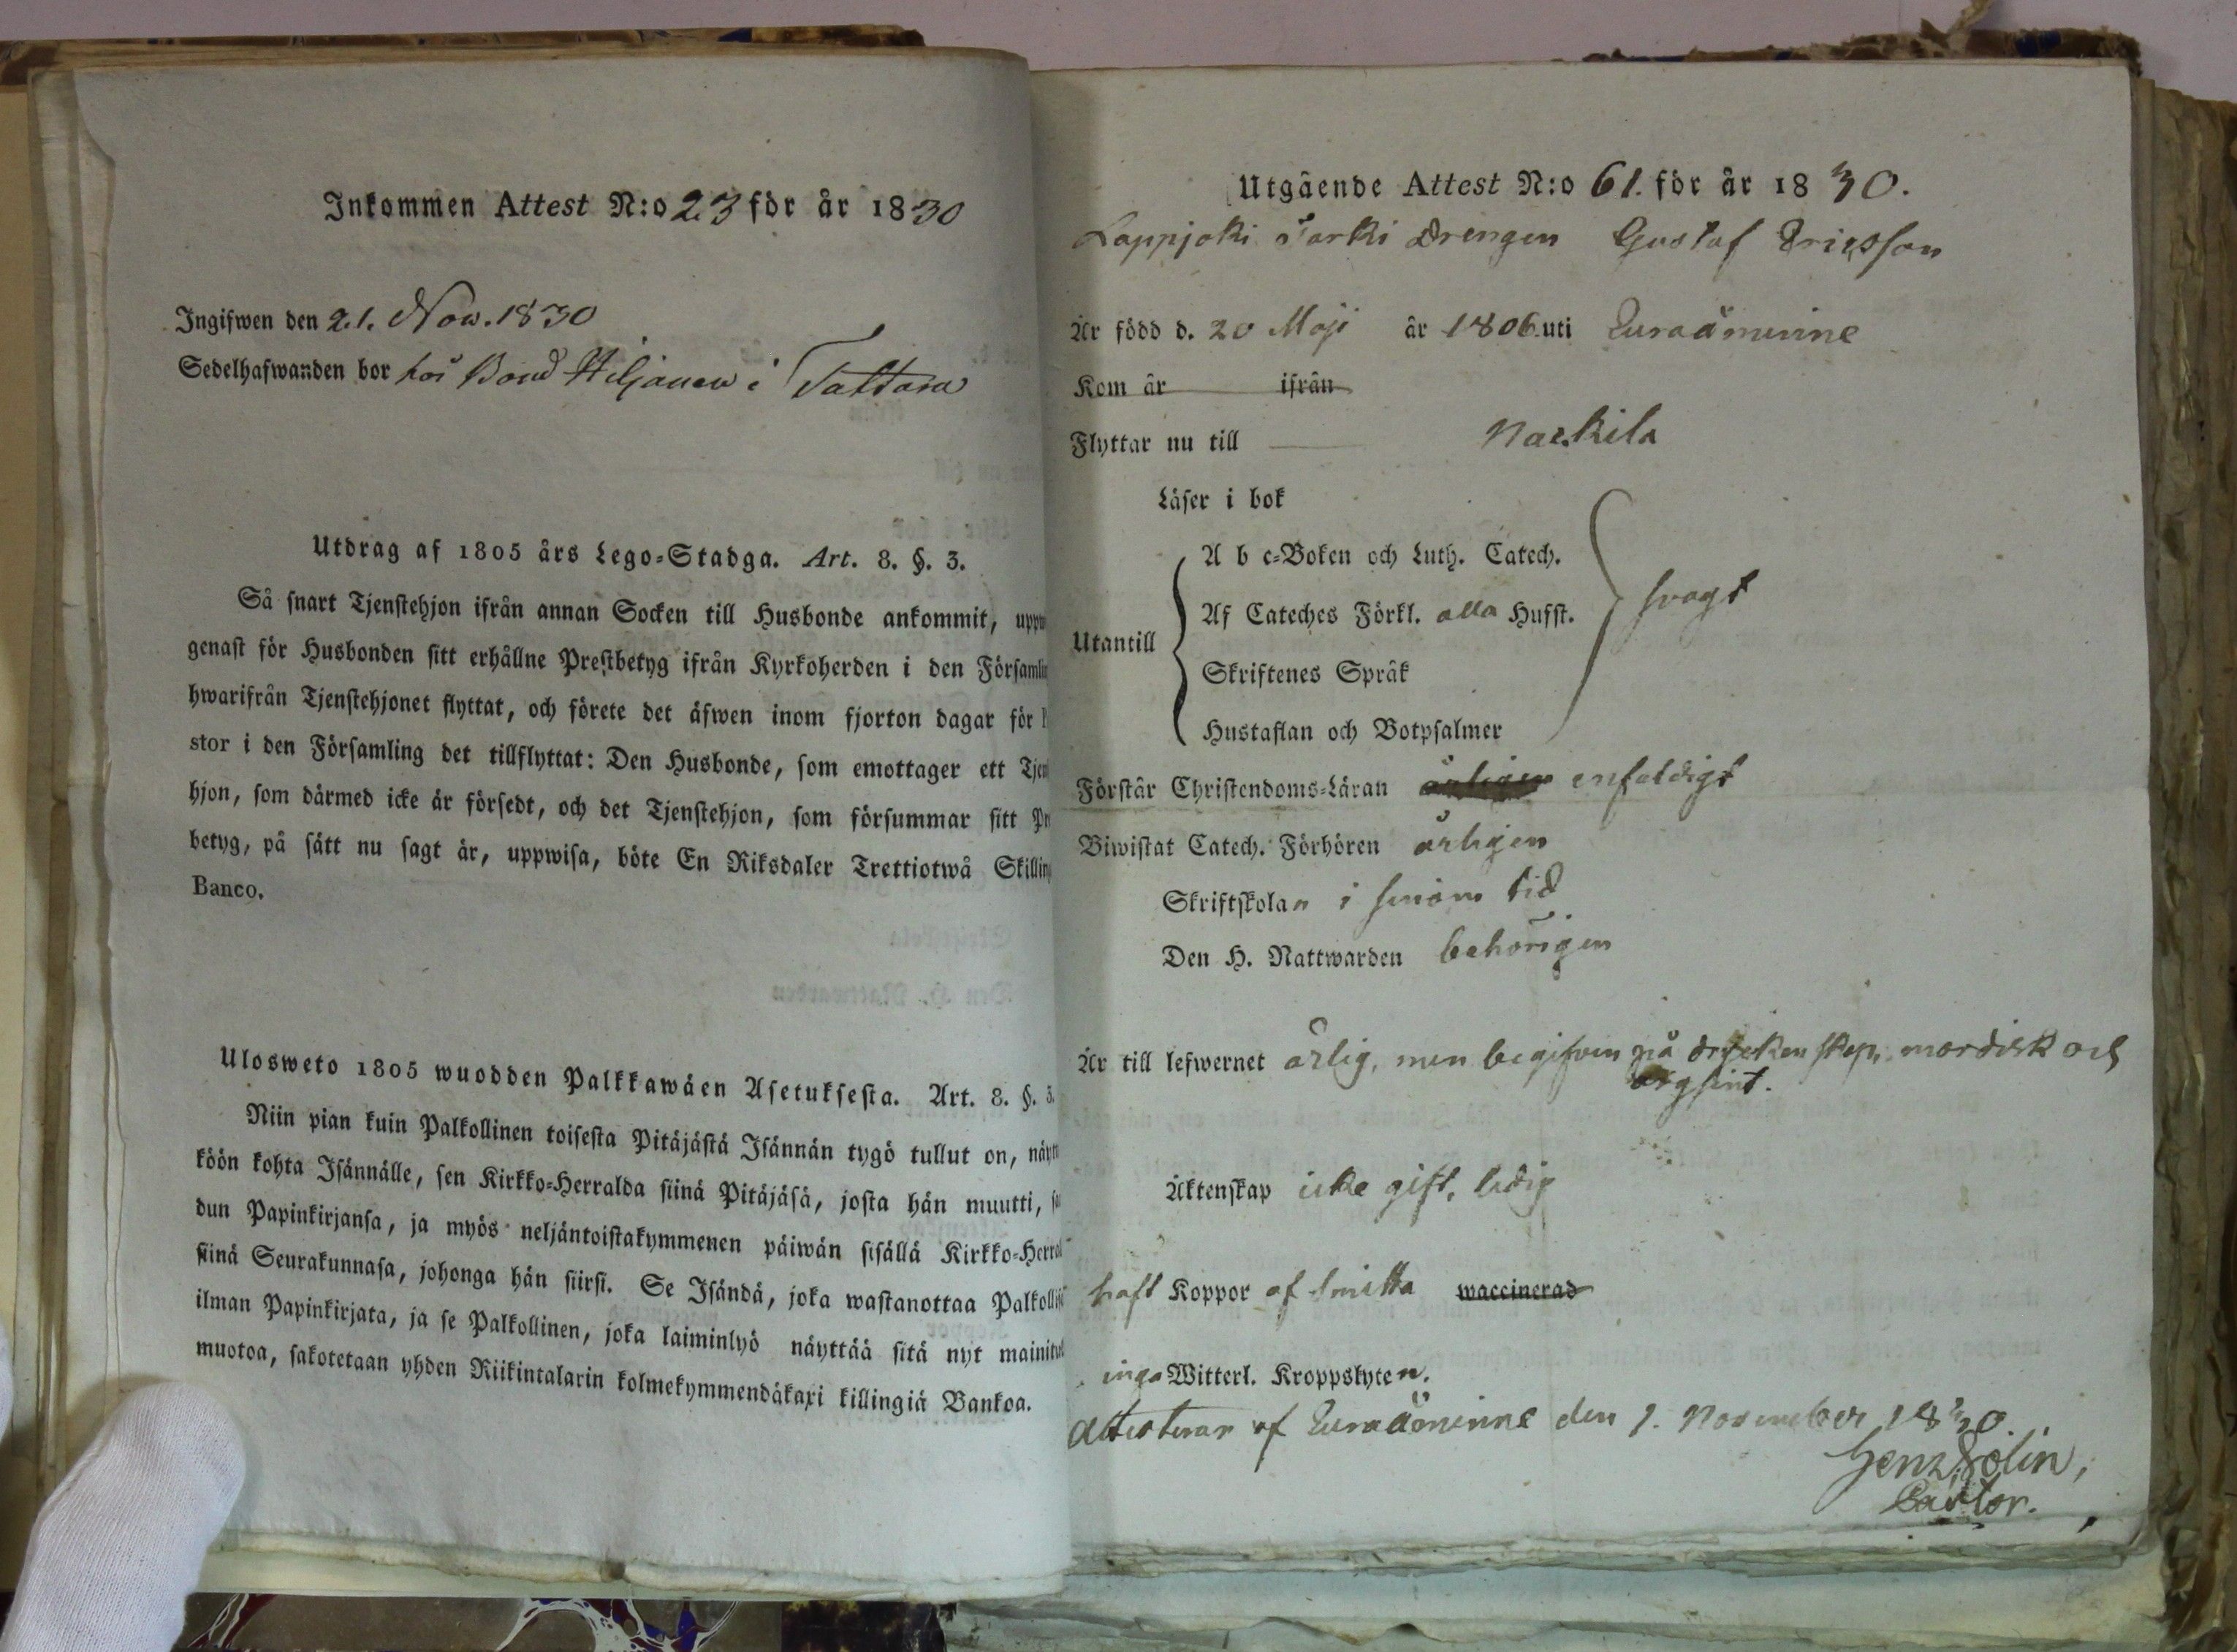 Inkommen Attest N:o 23 för år 1830
Ingifwen den 21. Nov. 1830
Sedelhafwanden bor hos Bond Hiljanen i Tattara
Utdrag af 1805 års Lego-Stadga. Art. 8. §. 3.
Så snart Tjenstehjon ifrån annan Socken till Husbonde ankommit, uppw
genast för Husbonden sitt erhållne Prestbetyg ifrån Kyrkoherden i den Församlin
hwarifrån Tjenstehjonet flyttat, och förete det äfwen inom fjorton dagar för
stor i den Församling det tillflyttat: Den Husbonde, som emottager ett Tjen
hjon, som därmed icke är försedt, och det Tjenstehjon, som försummar sitt Pr
betyg, på sätt nu sagt är, uppwisa, böte En Riksdaler Trettiotwå Skilling
Banco.
Ulosweto 1805 wuodden Palkkawäen Asetuksesta. Art. 8. §. 3.
Niin pian kuin Palkollinen toisesta Pitäjästä Isännän tygö tullut on, näyt
köön kohta Isännälle, sen Kirkko-Herralda siinä Pitäjäsä, josta hän muutti, sa
dun Papinkirjansa, ja myös neljäntoistakymmenen päiwän sisällä Kirkko-Herral
siinä Seurakunnasa, johonga hän siirsi. Se Isändä, joka wastanottaa Palkollis
ilman Papinkirjata, ja se Palkollinen, joka laiminlyö näyttää sitä nyt mainitul
muotoa, sakotetaan yhden Riikintalarin kolmekymmendäkaxi killingiä Bankoa.
Utgående Attest N:o 61. för år 1830.
Lappjoki Jarki Drengen Gustaf Ericsson
Är född d. 20 Maji år 1806 uti Euraåminne
Kom år ifrån
Flyttar nu till Nackila
Läser i bok
Utantill
A b c-Boken och Luth. Catech.
Af Cateches Förkl. alla Hufst.
Skriftenes Språk
Hustaflan och Botpsalmer
svagt
Förstår Christendoms-Läran årligen enfaldigt
Biwistat Catech. Förhören årligen
Skriftskolan i sinom tid
Den H. Nattwarden behörigen
Är till lefwernet ärlig, men begifven på dryckenskap, mordisk och
argsint.
Äktenskap icke gift, ledig
haft Koppor af smitta waccinerad
inga Witterl. Kroppslyten.
Attesterar af Euraåminne den 1. November 1830.
Henr. Polin,
Pastor.